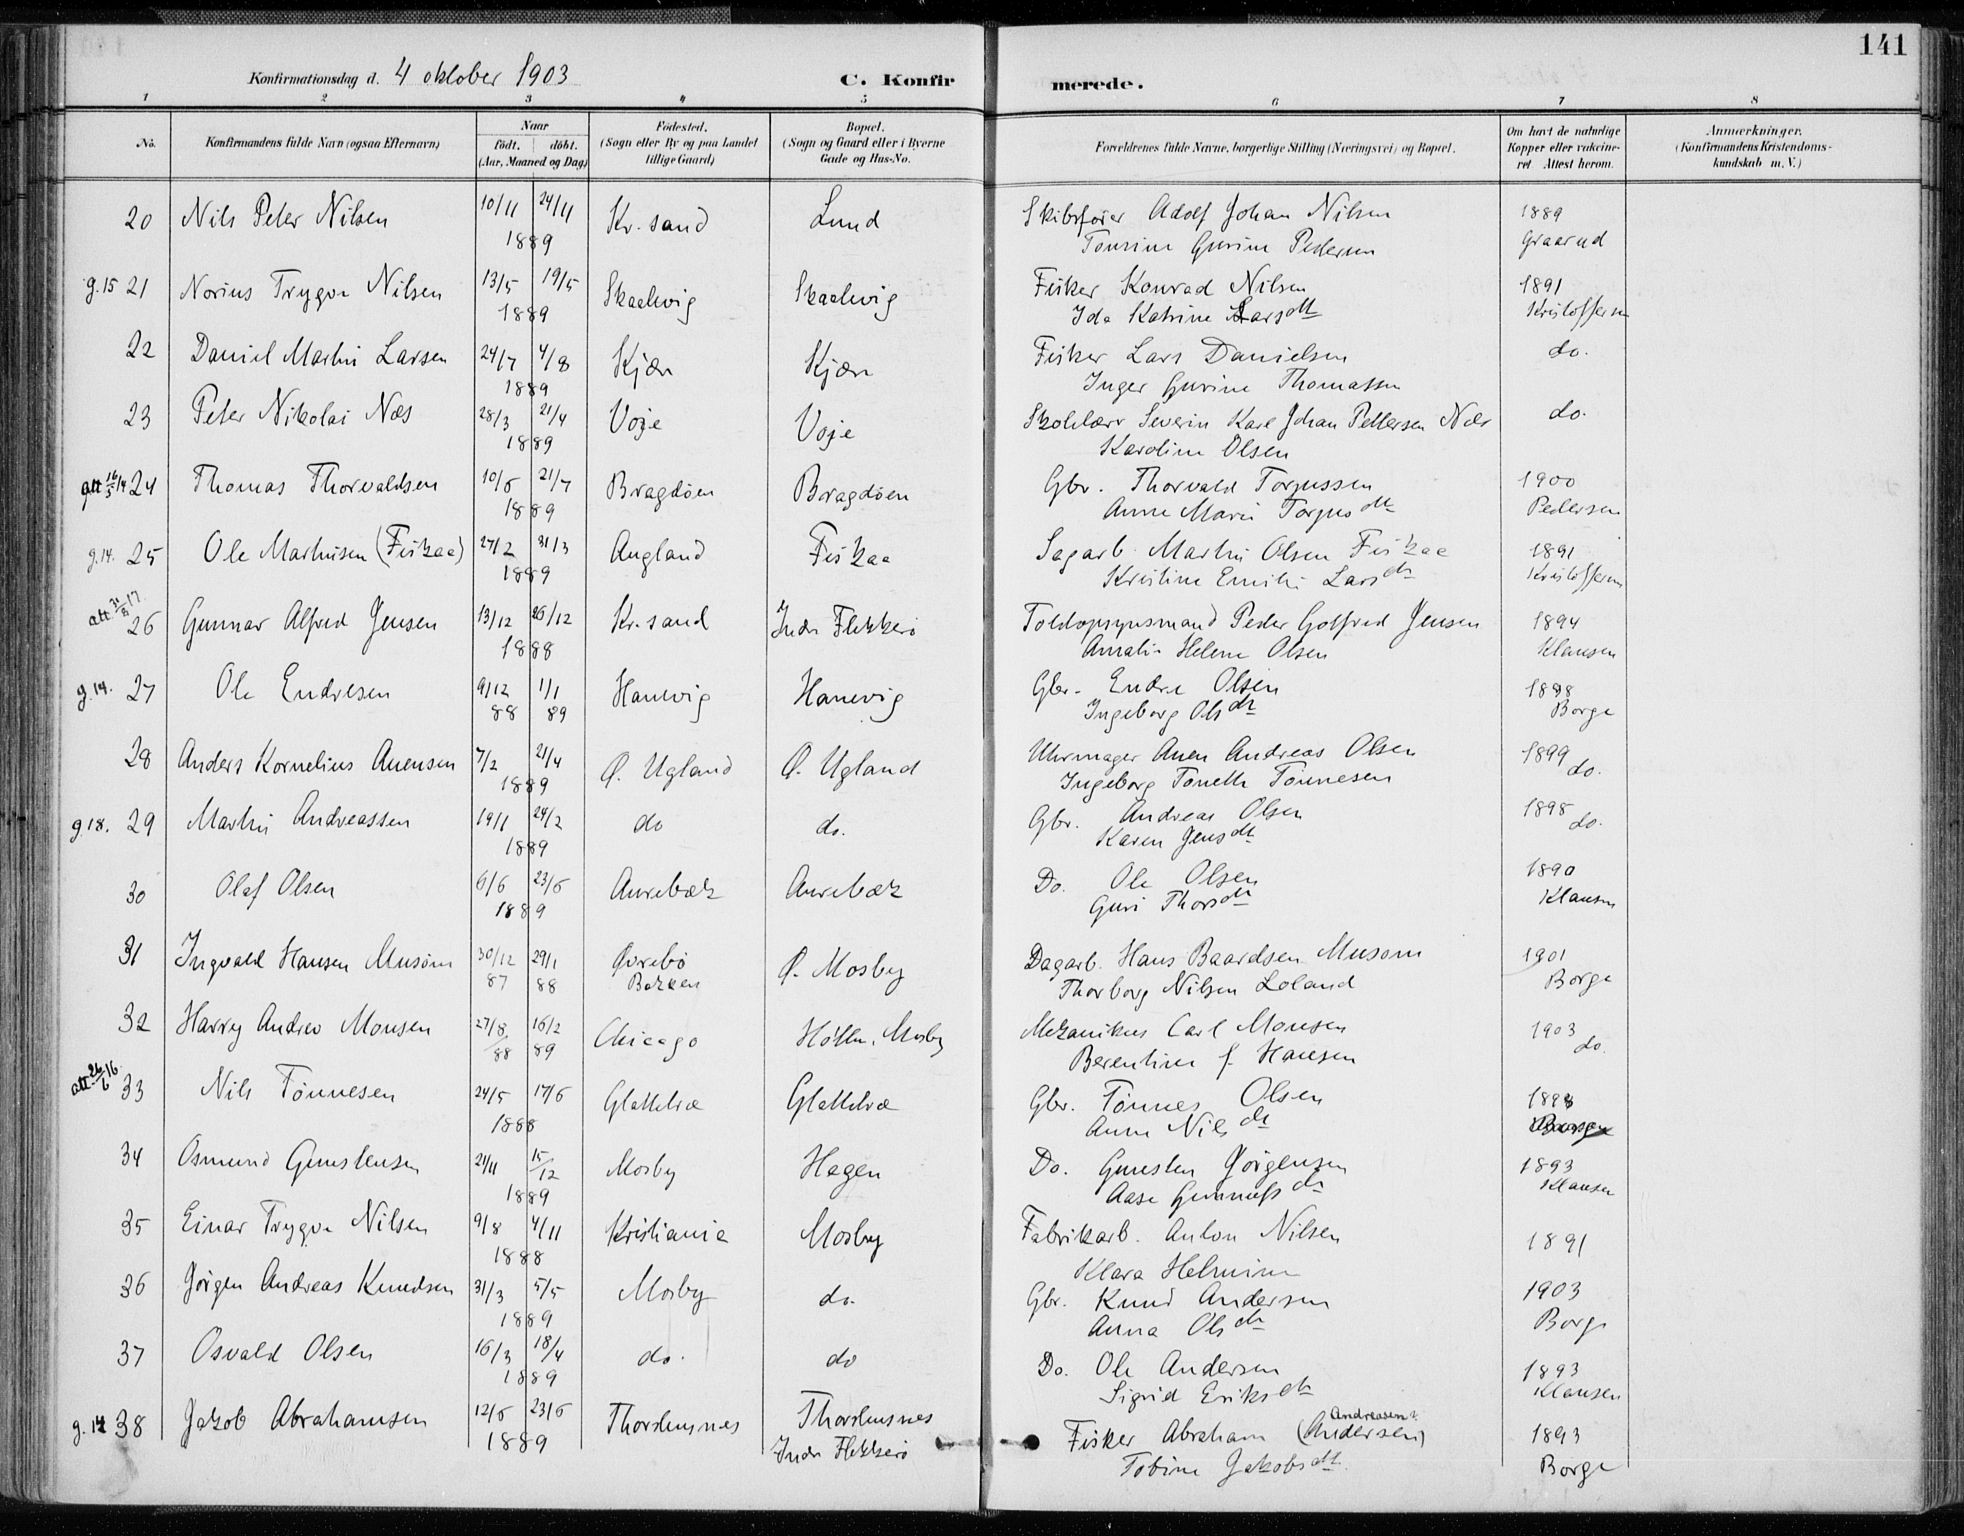 141
Konfirmationsdag d. 4 oktober 1903
C. Konfir merede.
1 2 3 4 5 6 7 8
No. Konfirmandens fulde Navn (ogsaa Efternavn) Naar født. døbt. (Aar, Maaned og Dag) Fødested. (Sogn eller By og paa Landet tillige Gaard) Bopæl. (Sogn og Gaard eller i Byerne Gade og Hus-No. Forældrenes fulde Navne, borgerlige Stilling (Næringsvei) og Bopæl. Om havt de naturlige Kopper eller vakcineret Attest herom. Anmærkninger. (Konfirmandens Kristendomskundskab m. V.)
20 Nils Peter Nilsen 10/11 24/11 Kr. sand Lund Skibsfører Adolf Johan Nilsen 1889
1889 Tomine Gurine Pedersen Graarud
g. 15 21 Norius Trygve Nilsen 13/5 19/5 Skaalevig Skaalevig Fisker Konrad Nilsen 1891
1889 Ida Katrine Larsdtt Kristoffersen
22 Daniel Martin Larsen 24/7 4/8 Kjær Kjær Fisker Lars Danielsen do.
1889 Inger Gurine Thomassen
23 Peter Nikolai Næs 28/3 21/4 Voje Voje Skolelærer Severin Karl Johan Pettersen Næs do.
1889 Karoline Olsen
att 16/5 14 24 Thomas Thorvaldsen 10/6 21/7 Bragdøen Bragdøen Gbr. Thorvald Torjussen 1900
1889 Anne Marie Torjusdtr Pedersen
g. 14. 25 Ole Martinsen (Fiskaa) 27/2 31/3 Augland Fiskaa Sagarb. Martin Olsen Fiskaa 1891
1889 Kristine Emilie Larsdtr Kristoffersen
att. 31/8 17 26 Gunnar Alfred Jensen 13/12 26/12 Kr. sand Indr Flekkerø Toldopsynsmand Peder Gotfred Jensen 1894
1888 Amalie Helene Olsen Klausen
g. 14. 27 Ole Endresen 9/12 1/1 Hanevig Hanevig Gbr. Endre Olsen 1898
88 89 Ingeborg Olsdtr Borge
28 Anders Kornelius Auensen 7/2 21/4 Ø. Ugland Ø. Ugland Uhrmager Auen Andreas Olsen 1899
1889 Ingeborg Tonette Tønnesen do.
g. 18. 29 Martin Andreassen 19/1 24/2 do do. Gbr. Andreas Olsen 1898
1889 Karen Jensdtr do.
30 Olaf Olsen 6/6 23/6 Aurebæk Aurebæk Do. Ole Olsen 1890
1889 Guri Thorsdtr Klausen
31 Ingvald Hansen Musøm 30/12 29/1 Øvrebø Ø. Mosby Dagarb. Hans Baardsen Musøm 1901
87 88 Bakken Thorborg Nilsen Loland Borge
32 Harry Andrew Monsen 27/8 16/2 Chicago Høllen, Mosby Mekanikus Carl Monsen 1903
/88 89 Berentine f. Hansen do.
att 26/6 16 33 Nils Tønnesen 24/5 17/6 Glattelræ Glattelræ Gbr. Tønnes Olsen 1898
1888 Anne Nilsdtr
34 Osmund Gunstensen 21/11 15/12 Mosby Hagen Do. Gunsten Jørgensen 1893
1889 Aase Gunnufsdtr Klausen
35 Einar Trygve Nilsen 9/8 4/11 Kristiania Mosby Fabrikarb. Anton Nilsen 1891
1888 Klara Helmine
36 Jørgen Andreas Knudsen 31/3 5/5 Mosby do. Gbr. Knud Andersen 1903
1889 Anna Olsdtr Borge
37 Osvald Olsen 16/3 18/4 do. do Do. Ole Andersen 1893
1889 Sigrid Eriksdtr Klausen
g. 14 38 Jakob Abrahamsen 12/6 23/6 Thorstensnes Thorstensnes Fisker Abraham (Andersen) Andreasen? 1893
1889 Indr Flekkerø Tobine Jakobsdtt. Borge